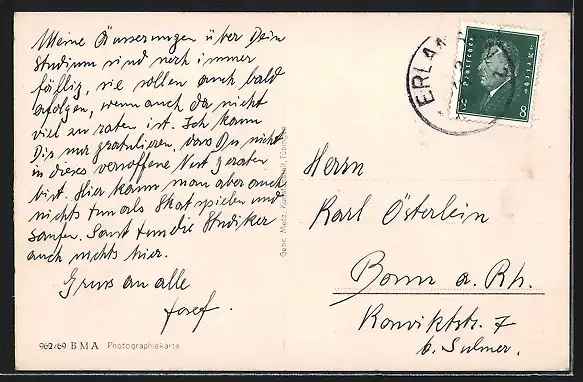 Meine Äusserungen über Dein
Studium sind noch immer
fällig, sie sollen auch bald
erfolgen, wenn auch da nicht
viel zu raten ist. Ich kann
Dir nur gratulieren, dass Du nicht
in dieses versoffene Nest geraten
bist. Hier kann man aber auch
nichts tun als Skat spielen und
saufen. Sonst tun die Studiker
auch nichts hier.
Gruss an alle
Josef.
962/69 BMA Photographiekarte
Gebr. Metz, Tübingen
ERLAN
8 8
Herrn
Karl Österlein
Bonn a. Rh.
Konviktstr. 7
b. Sulmer.